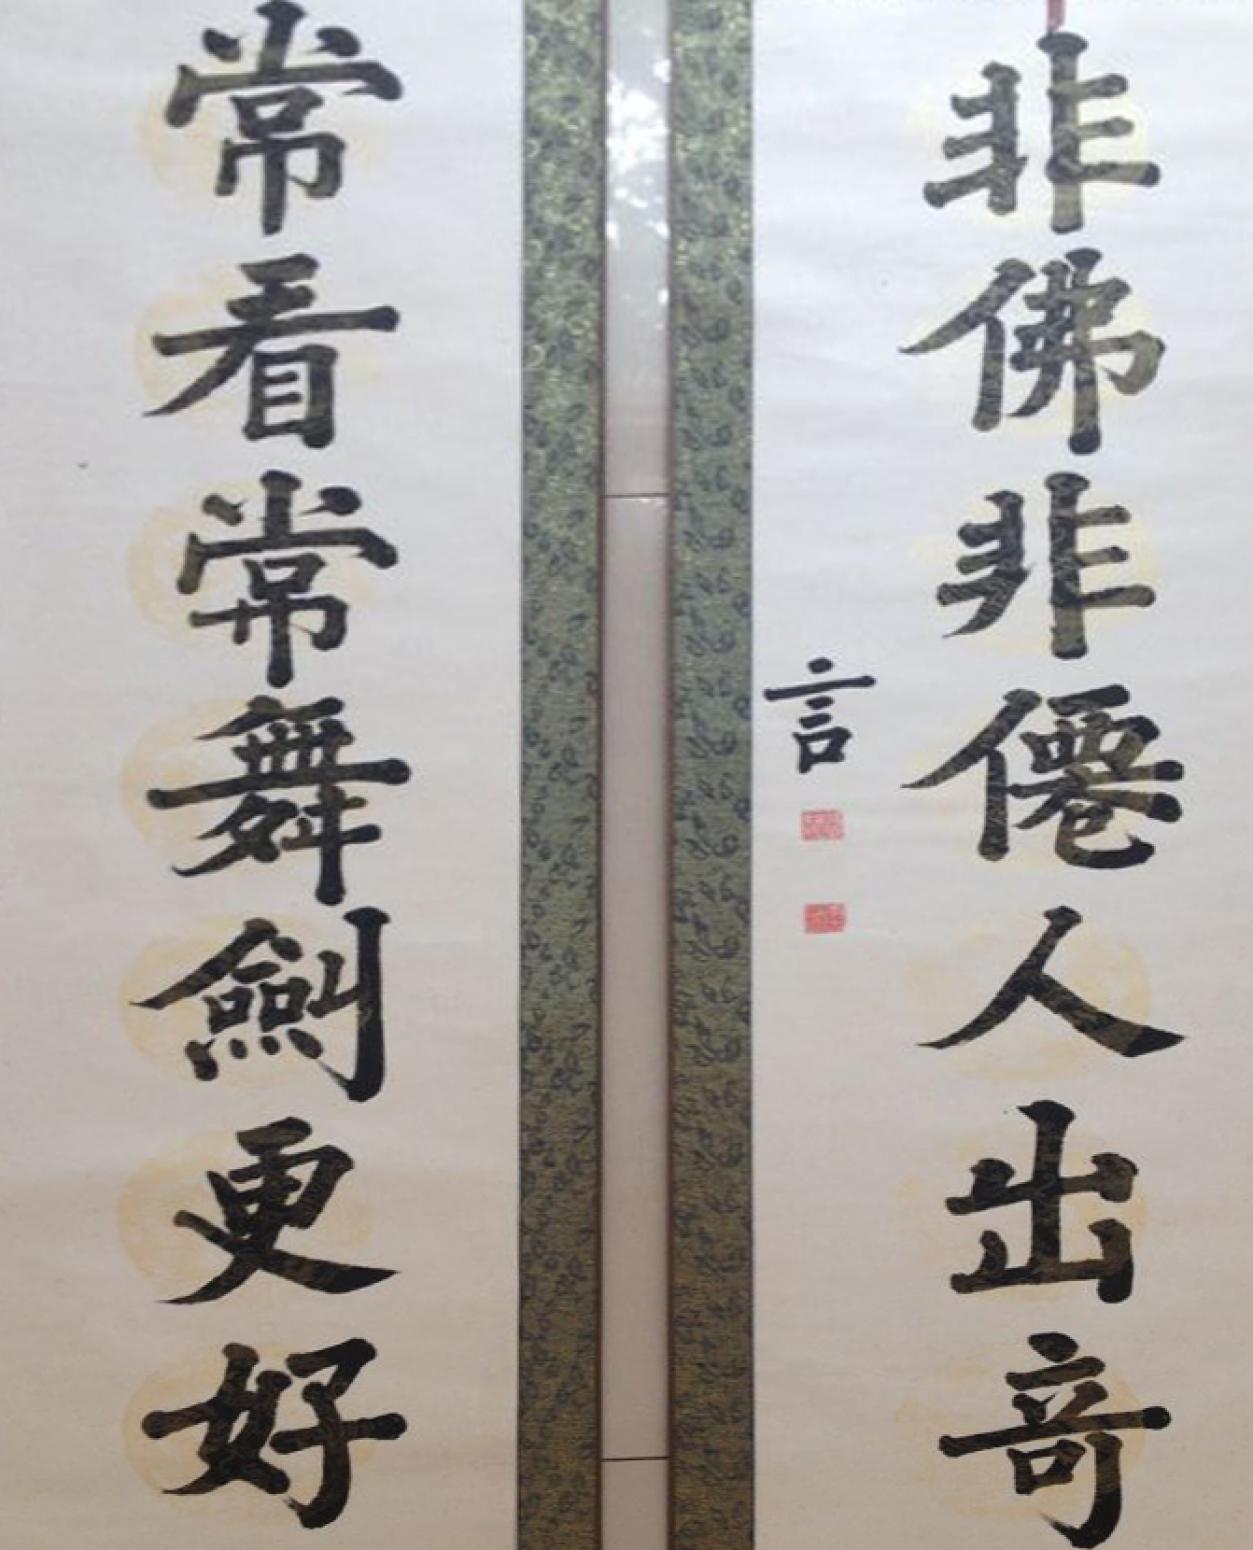 非佛非僊人出奇
言
常看常舞劍更好